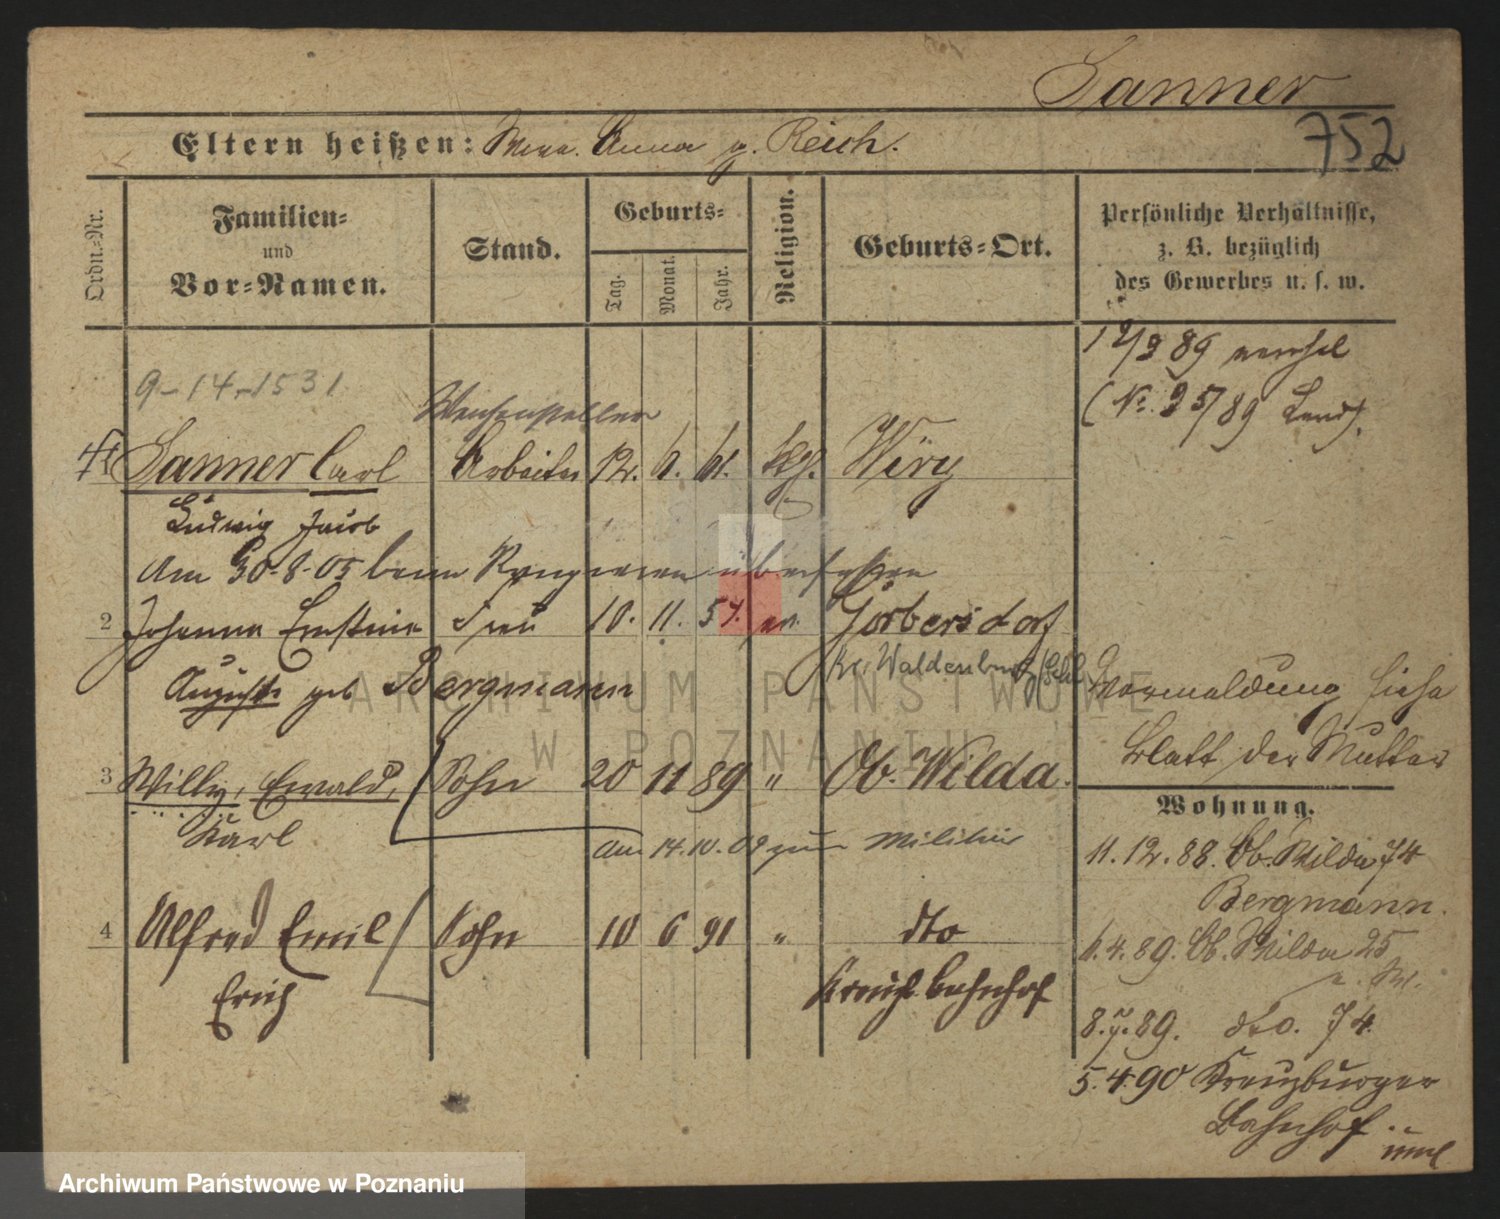 Sanner
752
Eltern heißen: Anna g. Reich.
Ordn.=Nr.
Familien=
und
Vor=Namen.
Stand.
Geburts=
Tag.
Monat.
Jahr.
Religion.
Geburts=Ort.
Persönliche Verhältnisse,
z. B. bezüglich
des Gewerbes u. s. w.
89
(No. 25/89 Land).
9-14-1531
Weichensteller
Sanner Carl Arbeiter 12. 6. 61. Wiry
Ludwig Jacob
Am 30-8-05 beim Rangieren überfahren
2 Johanna Ernstine Frau 10. 11. 57. ev. Görbersdorf
Auguste geb Bergmann
Kr. Waldenburg/Schl.
Vermeldung siehe
Blatt der Mutter
3 Willy, Ewald, Sohn 20 11 89 " Ob. Wilda.
Karl
am 14.10.09 zum Militär
4 Alfred Emil Sohn 10 6 91 " dto
Erich
Kreuzb. bahnhof
Wohnung.
11.12.88. Ob. Wilda 74
Bergmann.
6.4.89. Ob. Wilda 25
8.7.89. dto. 74.
5.4.90 Kreuzburger
Bahnhof
ARCHIWUM PAŃSTWOWE
W POZNANIU
Archiwum Państwowe w Poznaniu